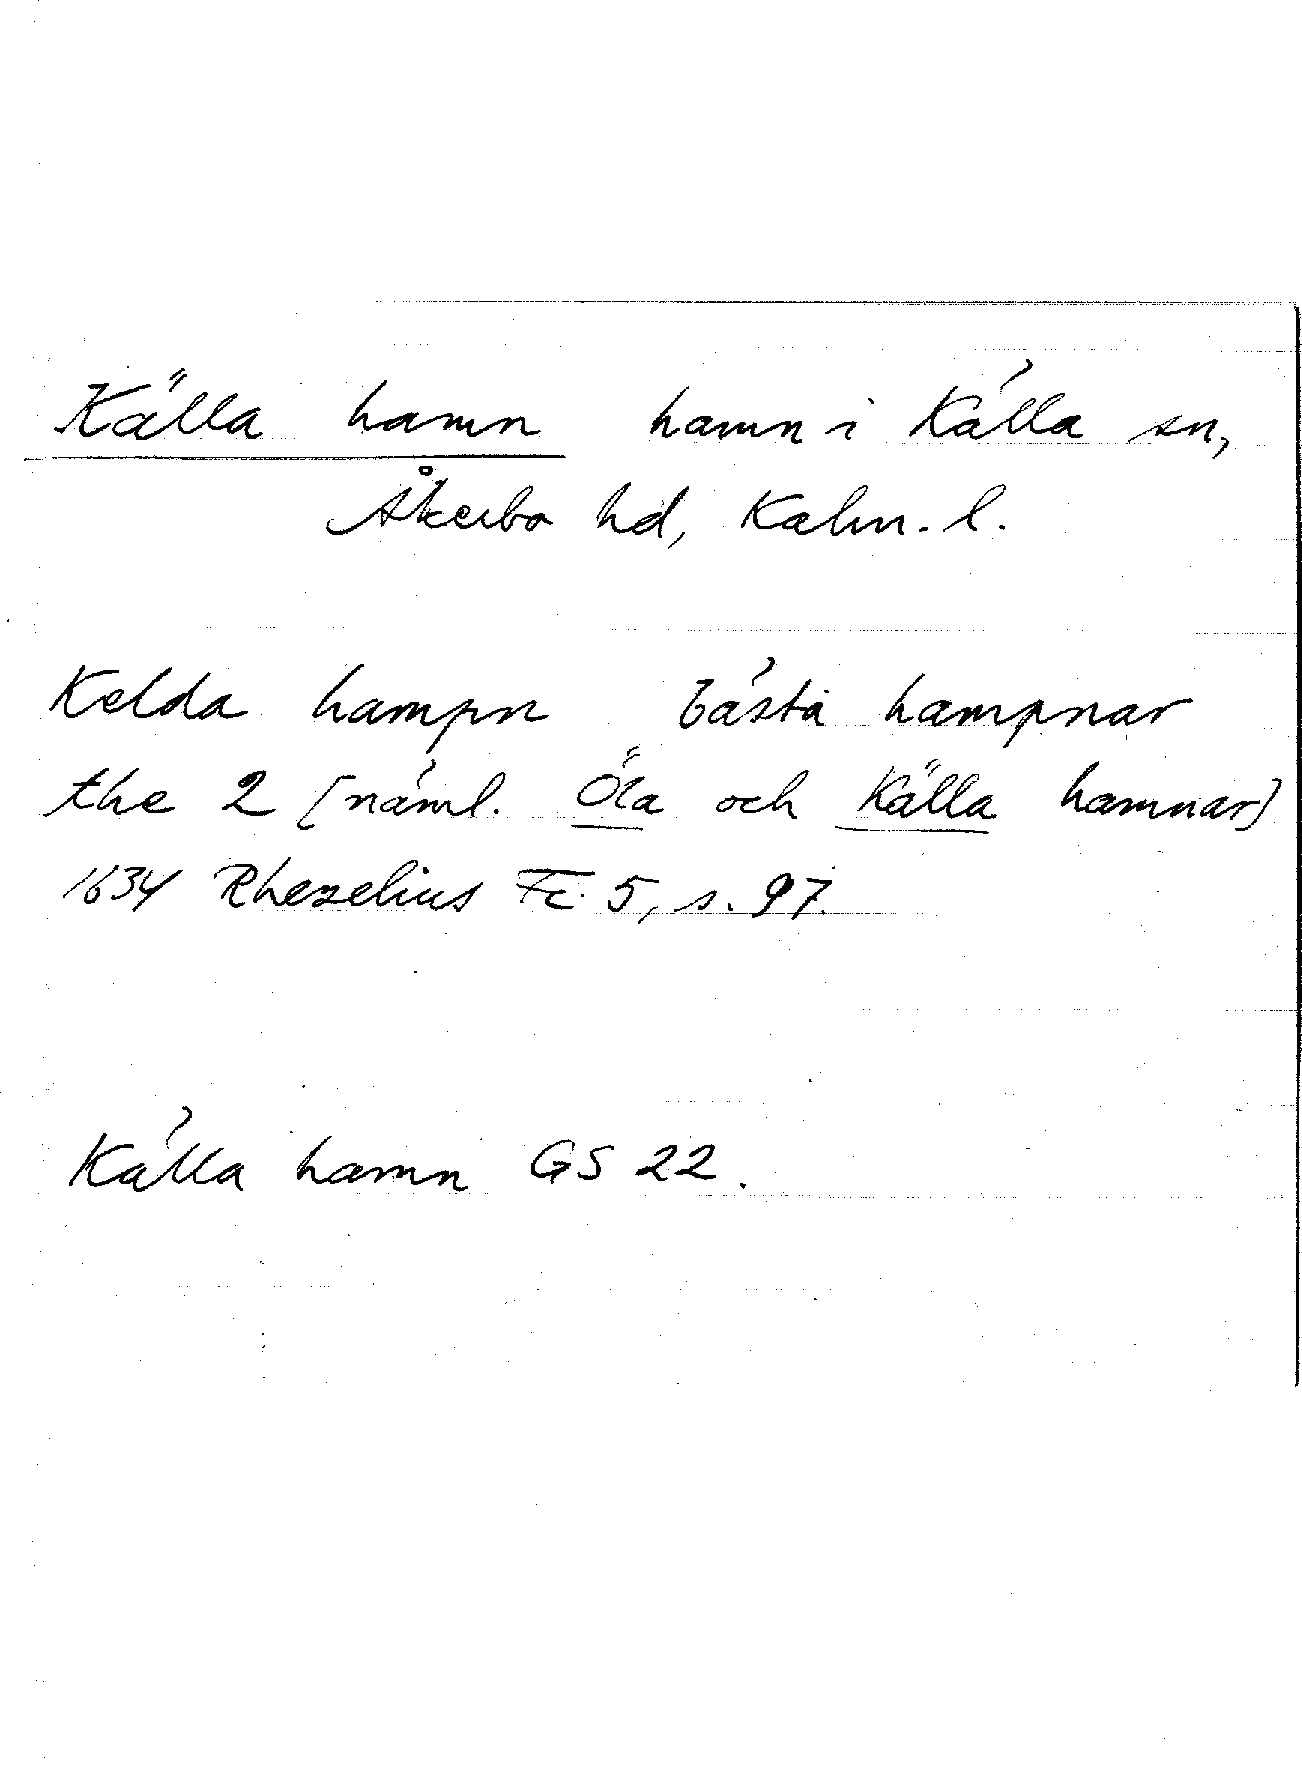 Källa hamn hamn i Källa sn,
Åkerbo hd, Kalm. l.
Kelda hampn bästa hampnar
the 2 [näml. Öla och Källa hamnar]
1634 Rhezelius Fc. 5, s. 97.
Källa hamn GS 22.